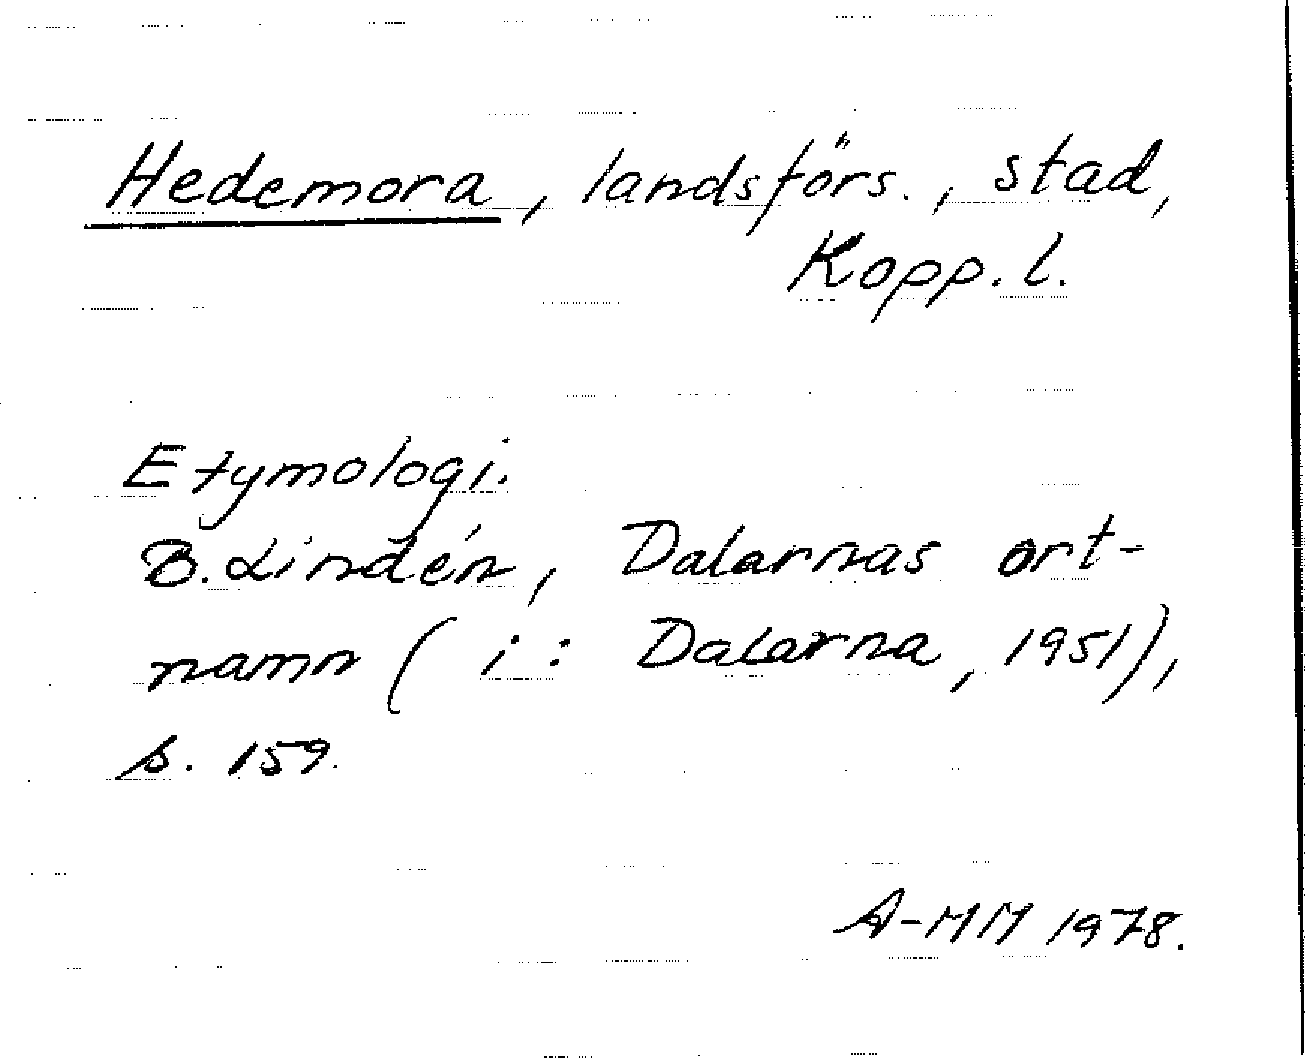 Hedemora, landsförs., stad,
Kopp. l.
Etymologi.
B. Lindén, Dalarnas ort-
namn ( i : Dalarna, 1951),
s. 159.
A-MM 1978.